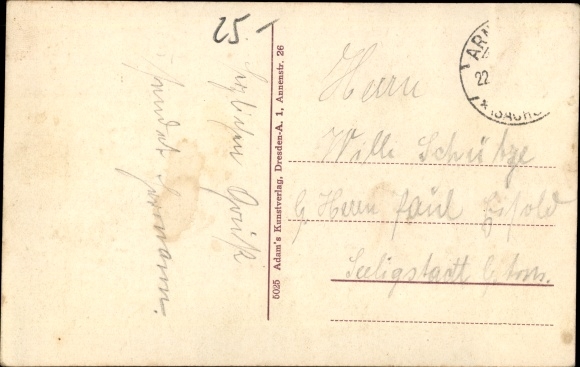 25.-
Herzlichen Gruß
sendet Hermann.
5025 Adam's Kunstverlag, Dresden-A. 1, Annenstr. 26
ARN
22
* (SACHS
Herrn
Willi Schütze
b. Herrn Paul
Seeligstadt